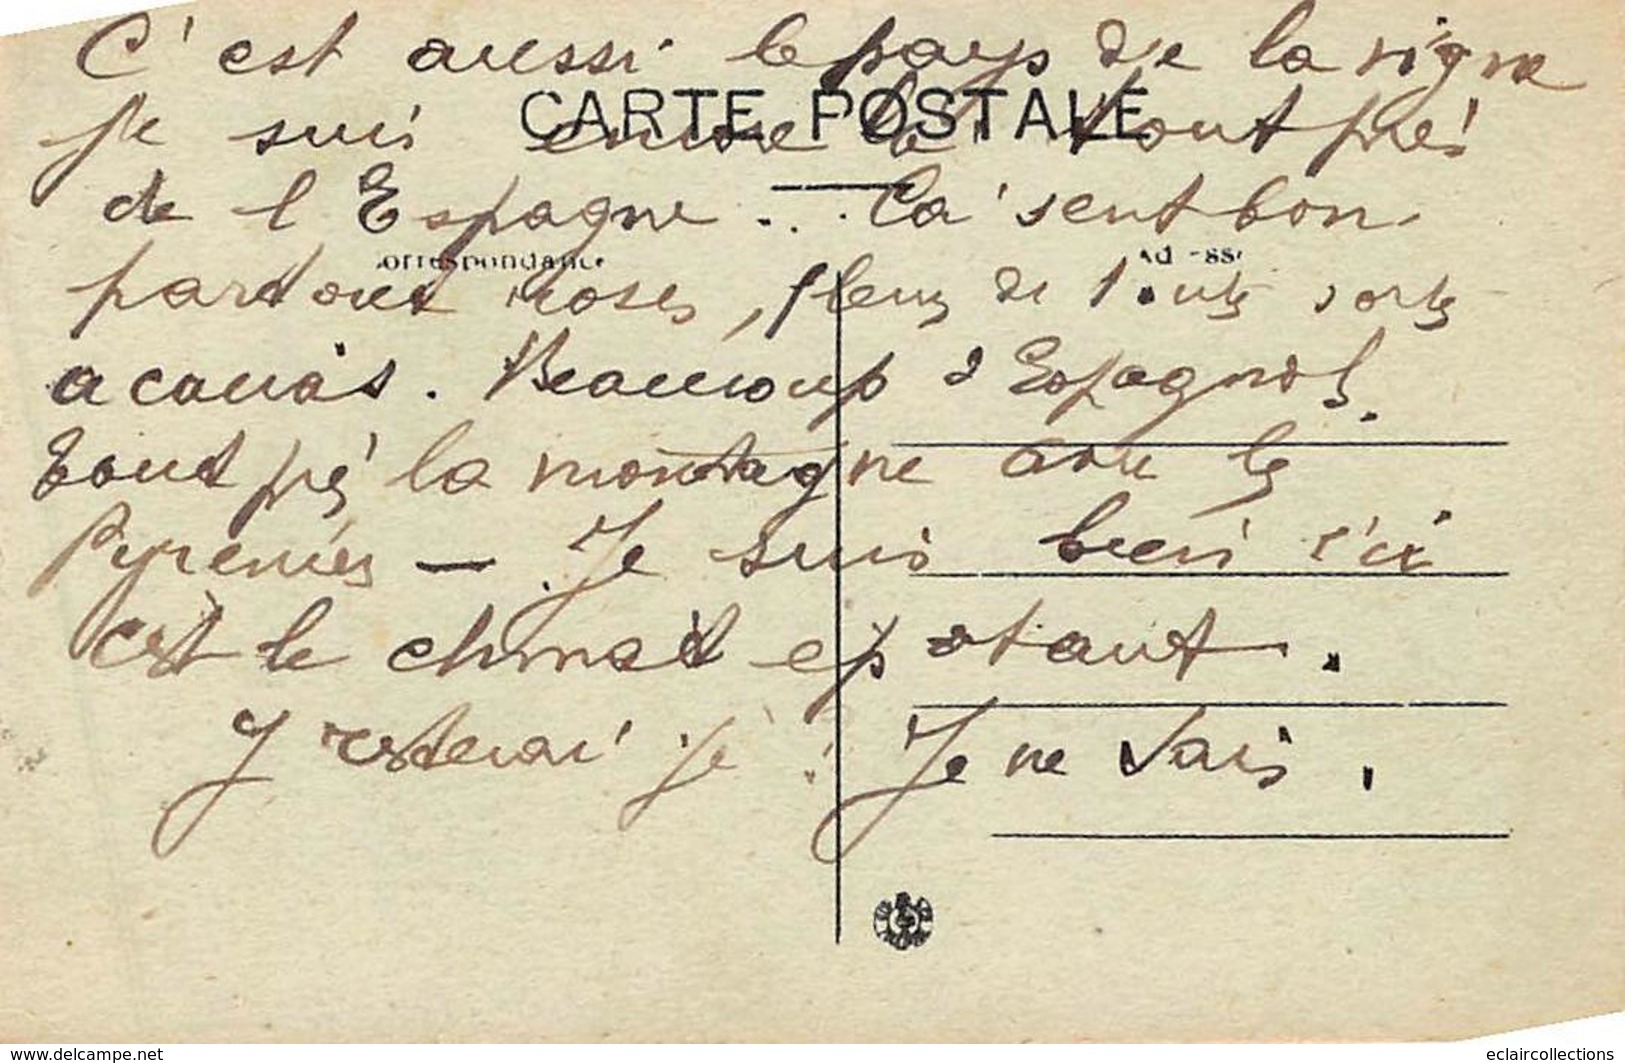 C'est aussi le pays de la vigne
CARTE POSTALE
je suis encore là tout près
de l'Espagne... Ca sent bon
Correspondance Adresse
partout roses, fleurs de toutes sortes
acacias. Beaucoup d'Espagnols.
tout près la montagne avec les
Pyrenées — Je suis bien ici
c'est le climat epatant.
Y resterai je ? Je ne sais.
www.delcampe.net
eclaircollections